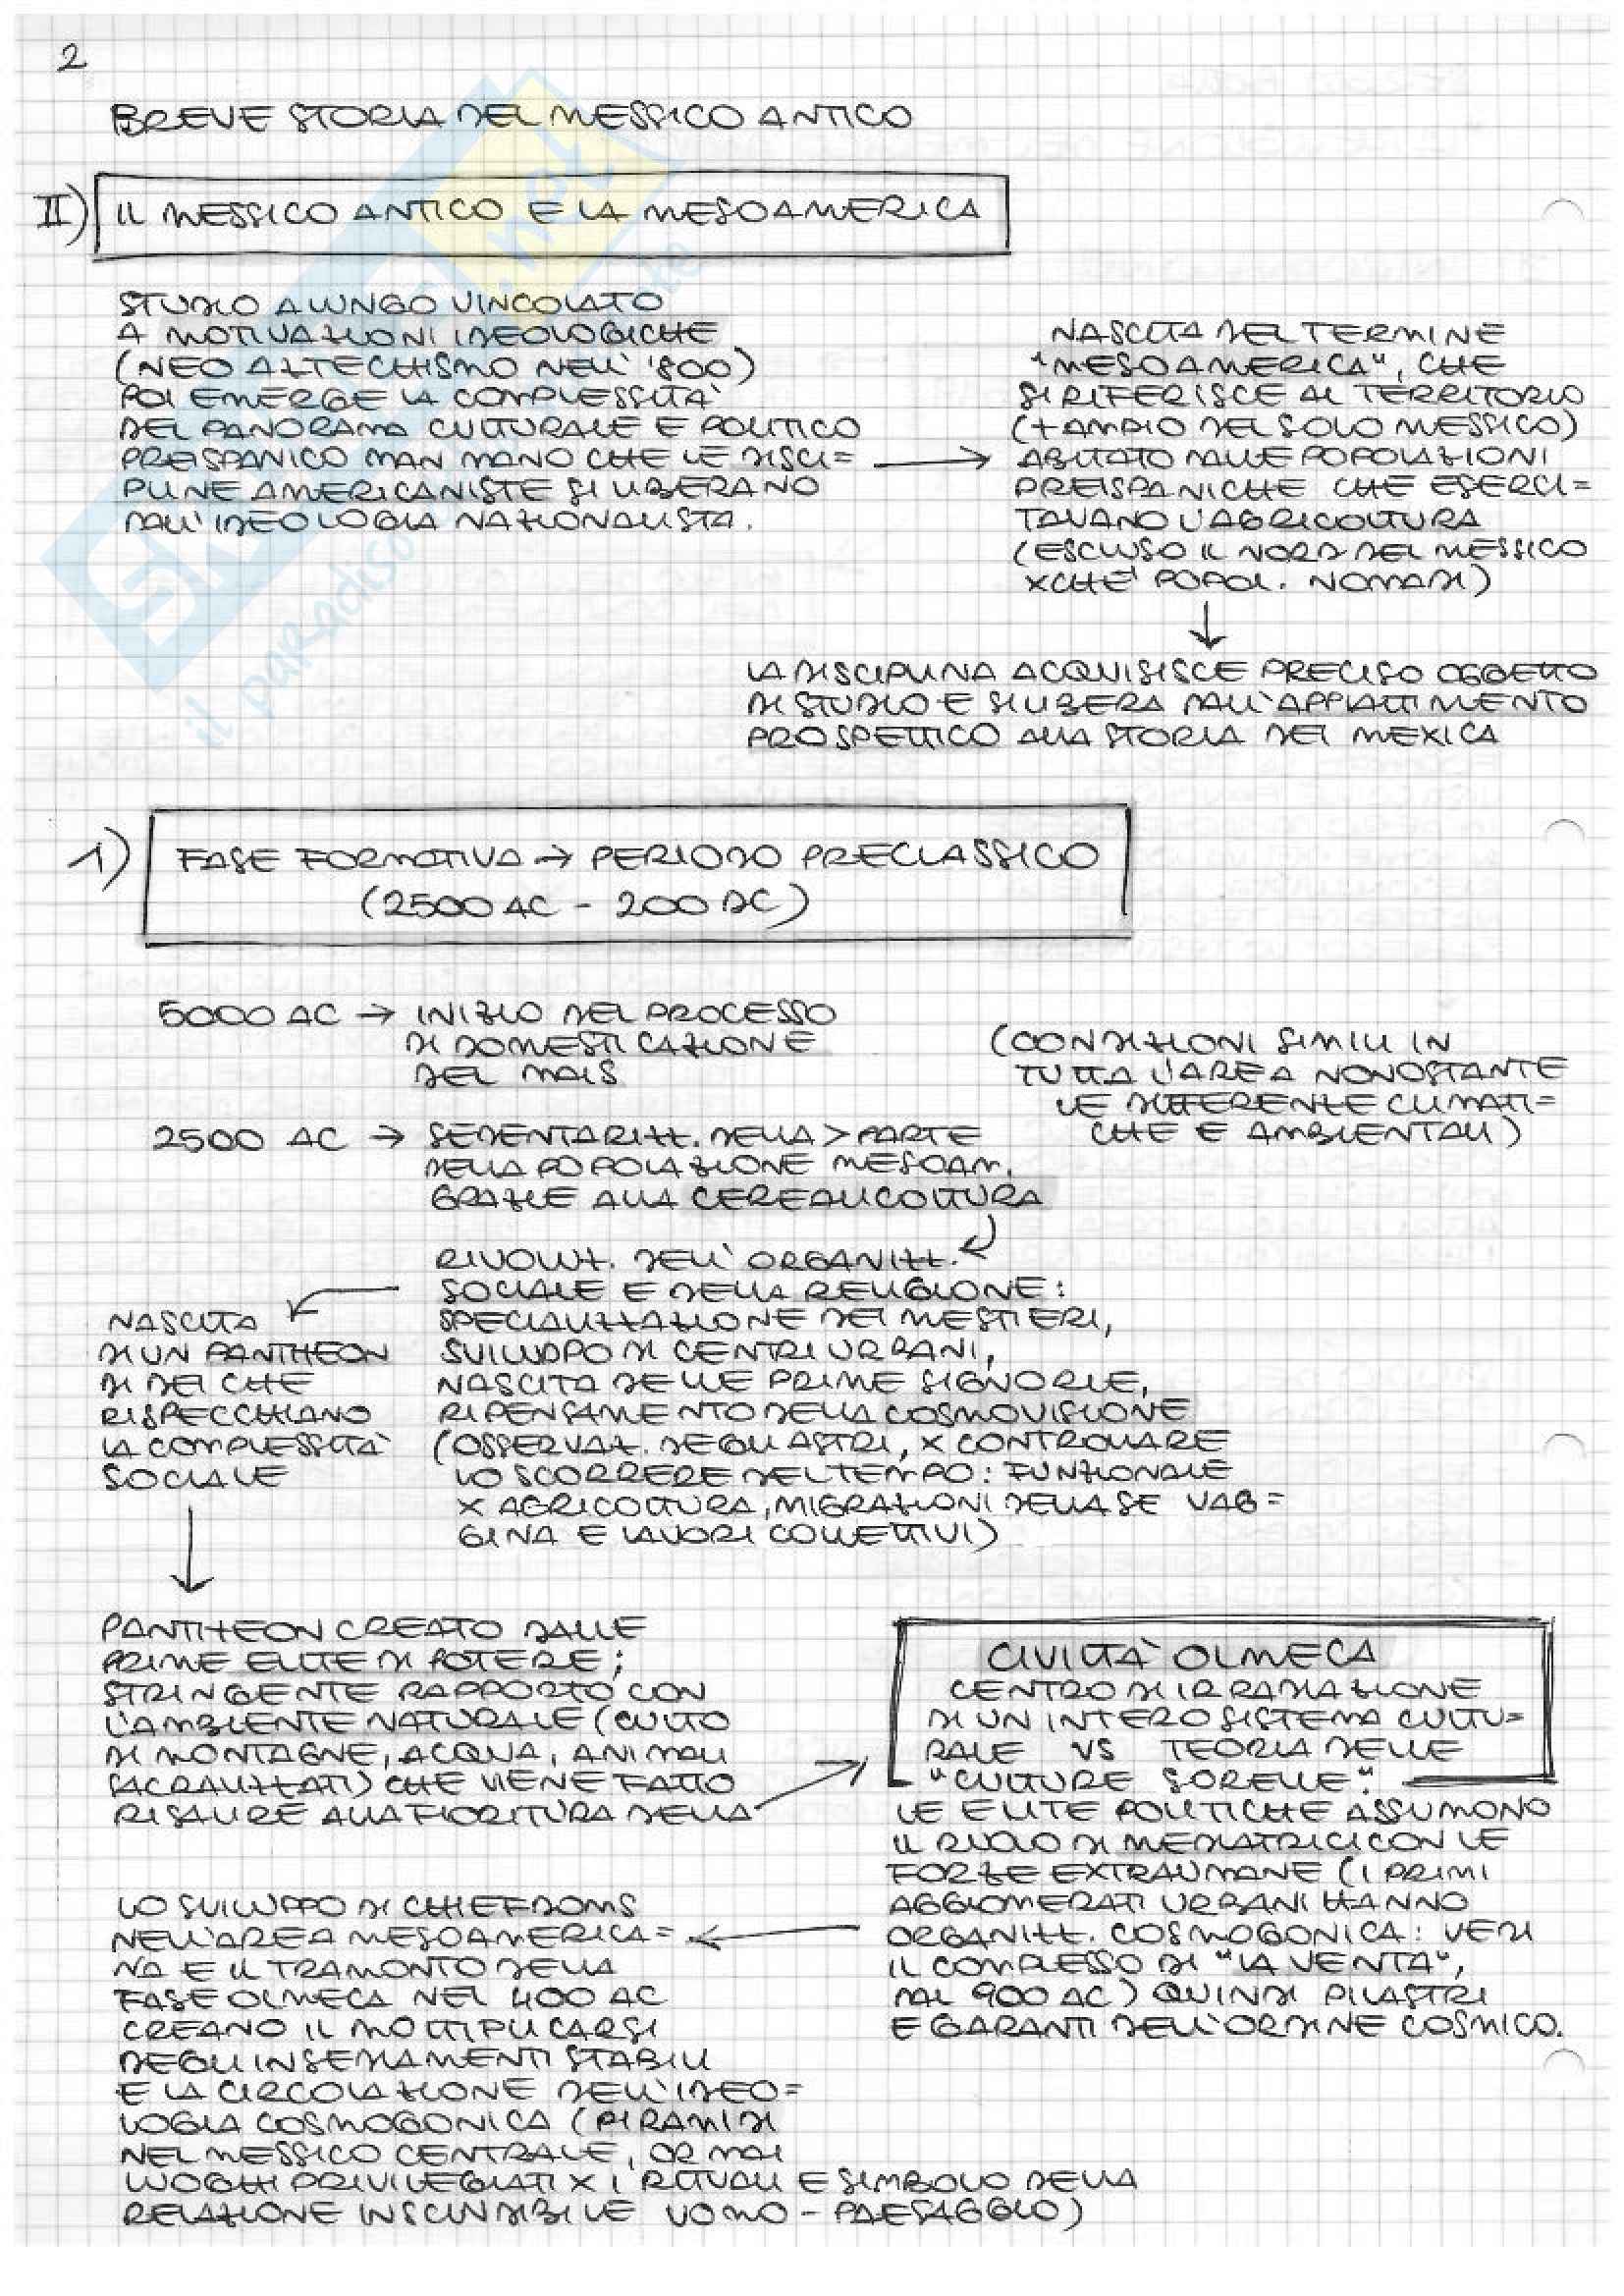 2
BREVE STORIA DEL MESSICO ANTICO
II) IL MESSICO ANTICO E LA MESOAMERICA
STUDIO A LUNGO VINCOLATO
A MOTIVAZIONI IDEOLOGICHE
(NEO AZTECHISMO NELL' '800)
POI EMERGE LA COMPLESSITÀ
DEL PANORAMA CULTURALE E POLITICO
PREISPANICO MAN MANO CHE LE DISCI= →
PLINE AMERICANISTE SI LIBERANO
DALL'IDEOLOGIA NAZIONALISTA.
NASCITA DEL TERMINE
"MESOAMERICA", CHE
SI RIFERISCE AL TERRITORIO
(+ AMPIO DEL SOLO MESSICO)
ABITATO DALLE POPOLAZIONI
PREISPANICHE CHE ESERCI=
TAVANO L'AGRICOLTURA
(ESCLUSO IL NORD DEL MESSICO
XCHÈ POPOL. NOMADI)
↓
LA DISCIPLINA ACQUISISCE PRECISO OGGETTO
DI STUDIO E SI LIBERA DALL'APPIATTIMENTO
PROSPETTICO ALLA STORIA DEI MEXICA
1) FASE FORMATIVA → PERIODO PRECLASSICO
(2500 AC - 200 DC)
5000 AC → INIZIO DEL PROCESSO
DI DOMESTICAZIONE
DEL MAIS
(CONDIZIONI SIMILI IN
TUTTA L'AREA NONOSTANTE
LE DIFFERENZE CLIMATI=
CHE E AMBIENTALI)
2500 AC → SEDENTARIZZ. DELLA > PARTE
DELLA POPOLAZIONE MESOAM.
GRAZIE ALLA CEREALICOLTURA
RIVOLUZ. DELL'ORGANIZZ.
SOCIALE E DELLA RELIGIONE:
SPECIALIZZAZIONE DEI MESTIERI,
SVILUPPO DI CENTRI URBANI,
NASCITA DELLE PRIME SIGNORIE,
RIPENSAMENTO DELLA COSMOVISIONE
(OSSERVAZ. DEGLI ASTRI, X CONTROLLARE
LO SCORRERE DEL TEMPO: FUNZIONALE
X AGRICOLTURA, MIGRAZIONI DELLA SELVAG=
GINA E LAVORI COLLETTIVI)
NASCITA
DI UN PANTHEON
DI DEI CHE
RISPECCHIANO
LA COMPLESSITÀ
SOCIALE
↓
PANTHEON CREATO DALLE
PRIME ELITE DI POTERE;
STRINGENTE RAPPORTO CON
L'AMBIENTE NATURALE (CULTO
DI MONTAGNE, ACQUA, ANIMALI
SACRALIZZATI) CHE VIENE FATTO
RISALIRE ALLA FIORITURA DELLA
CIVILTÀ OLMECA
CENTRO DI IRRADIAZIONE
DI UN INTERO SISTEMA CULTU=
RALE VS TEORIA DELLE
"CULTURE SORELLE".
LE ELITE POLITICHE ASSUMONO
IL RUOLO DI MEDIATRICI CON LE
FORZE EXTRAUMANE (I PRIMI
AGGLOMERATI URBANI HANNO
ORGANIZZ. COSMOGONICA: VEDI
IL COMPLESSO DI "LA VENTA",
DAL 900 AC) QUINDI PILASTRI
E GARANTI DELL'ORDINE COSMICO.
LO SVILUPPO DI CHIEFDOMS
NELL'AREA MESOAMERICA= ←
NA E IL TRAMONTO DELLA
FASE OLMECA NEL 400 AC
CREANO IL MOLTIPLICARSI
DEGLI INSEDIAMENTI STABILI
E LA CIRCOLAZIONE DELL'IDEO=
LOGIA COSMOGONICA (PIRAMIDI
NEL MESSICO CENTRALE, ORMAI
LUOGHI PRIVILEGIATI X I RITUALI E SIMBOLO DELLA
RELAZIONE INSCINDIBILE UOMO - PAESAGGIO)
SKUOLA.net
il paradiso dello studente